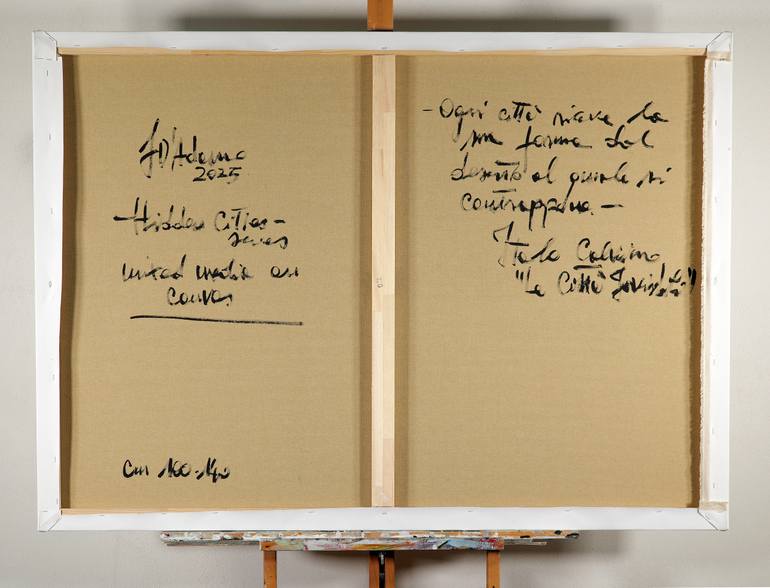 D'Adamo
2025
- Hidden Cities -
series
mixed media on
canvas
cm 100 x 140
- Ogni città riceve la
sua forma dal
deserto al quale si
contrappone -
Italo Calvino
"Le Città Invisibili"